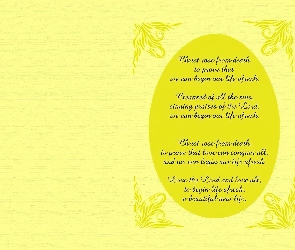 Christ rose from death
to prove that
we can begin our life afresh.
of all the
of the Lord,
we can begin our life afresh.
Christ rose from death
to prove that love can conquer all,
and we can begin our life afresh.
the Lord and love all,
to begin life afresh,
a beautiful new life.